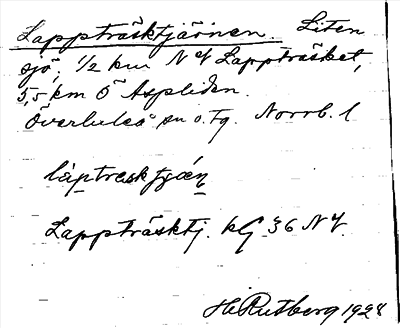 Lappträsktjärnen. Liten
sjö, 1/2 km NV Lappträsket,
5,5 km Ö Aspliden.
Överluleå sn o. Tg. Norrb. l
làptresktjǽn
Lappträsktj. kG 36 NV.
H. Rutberg 1928